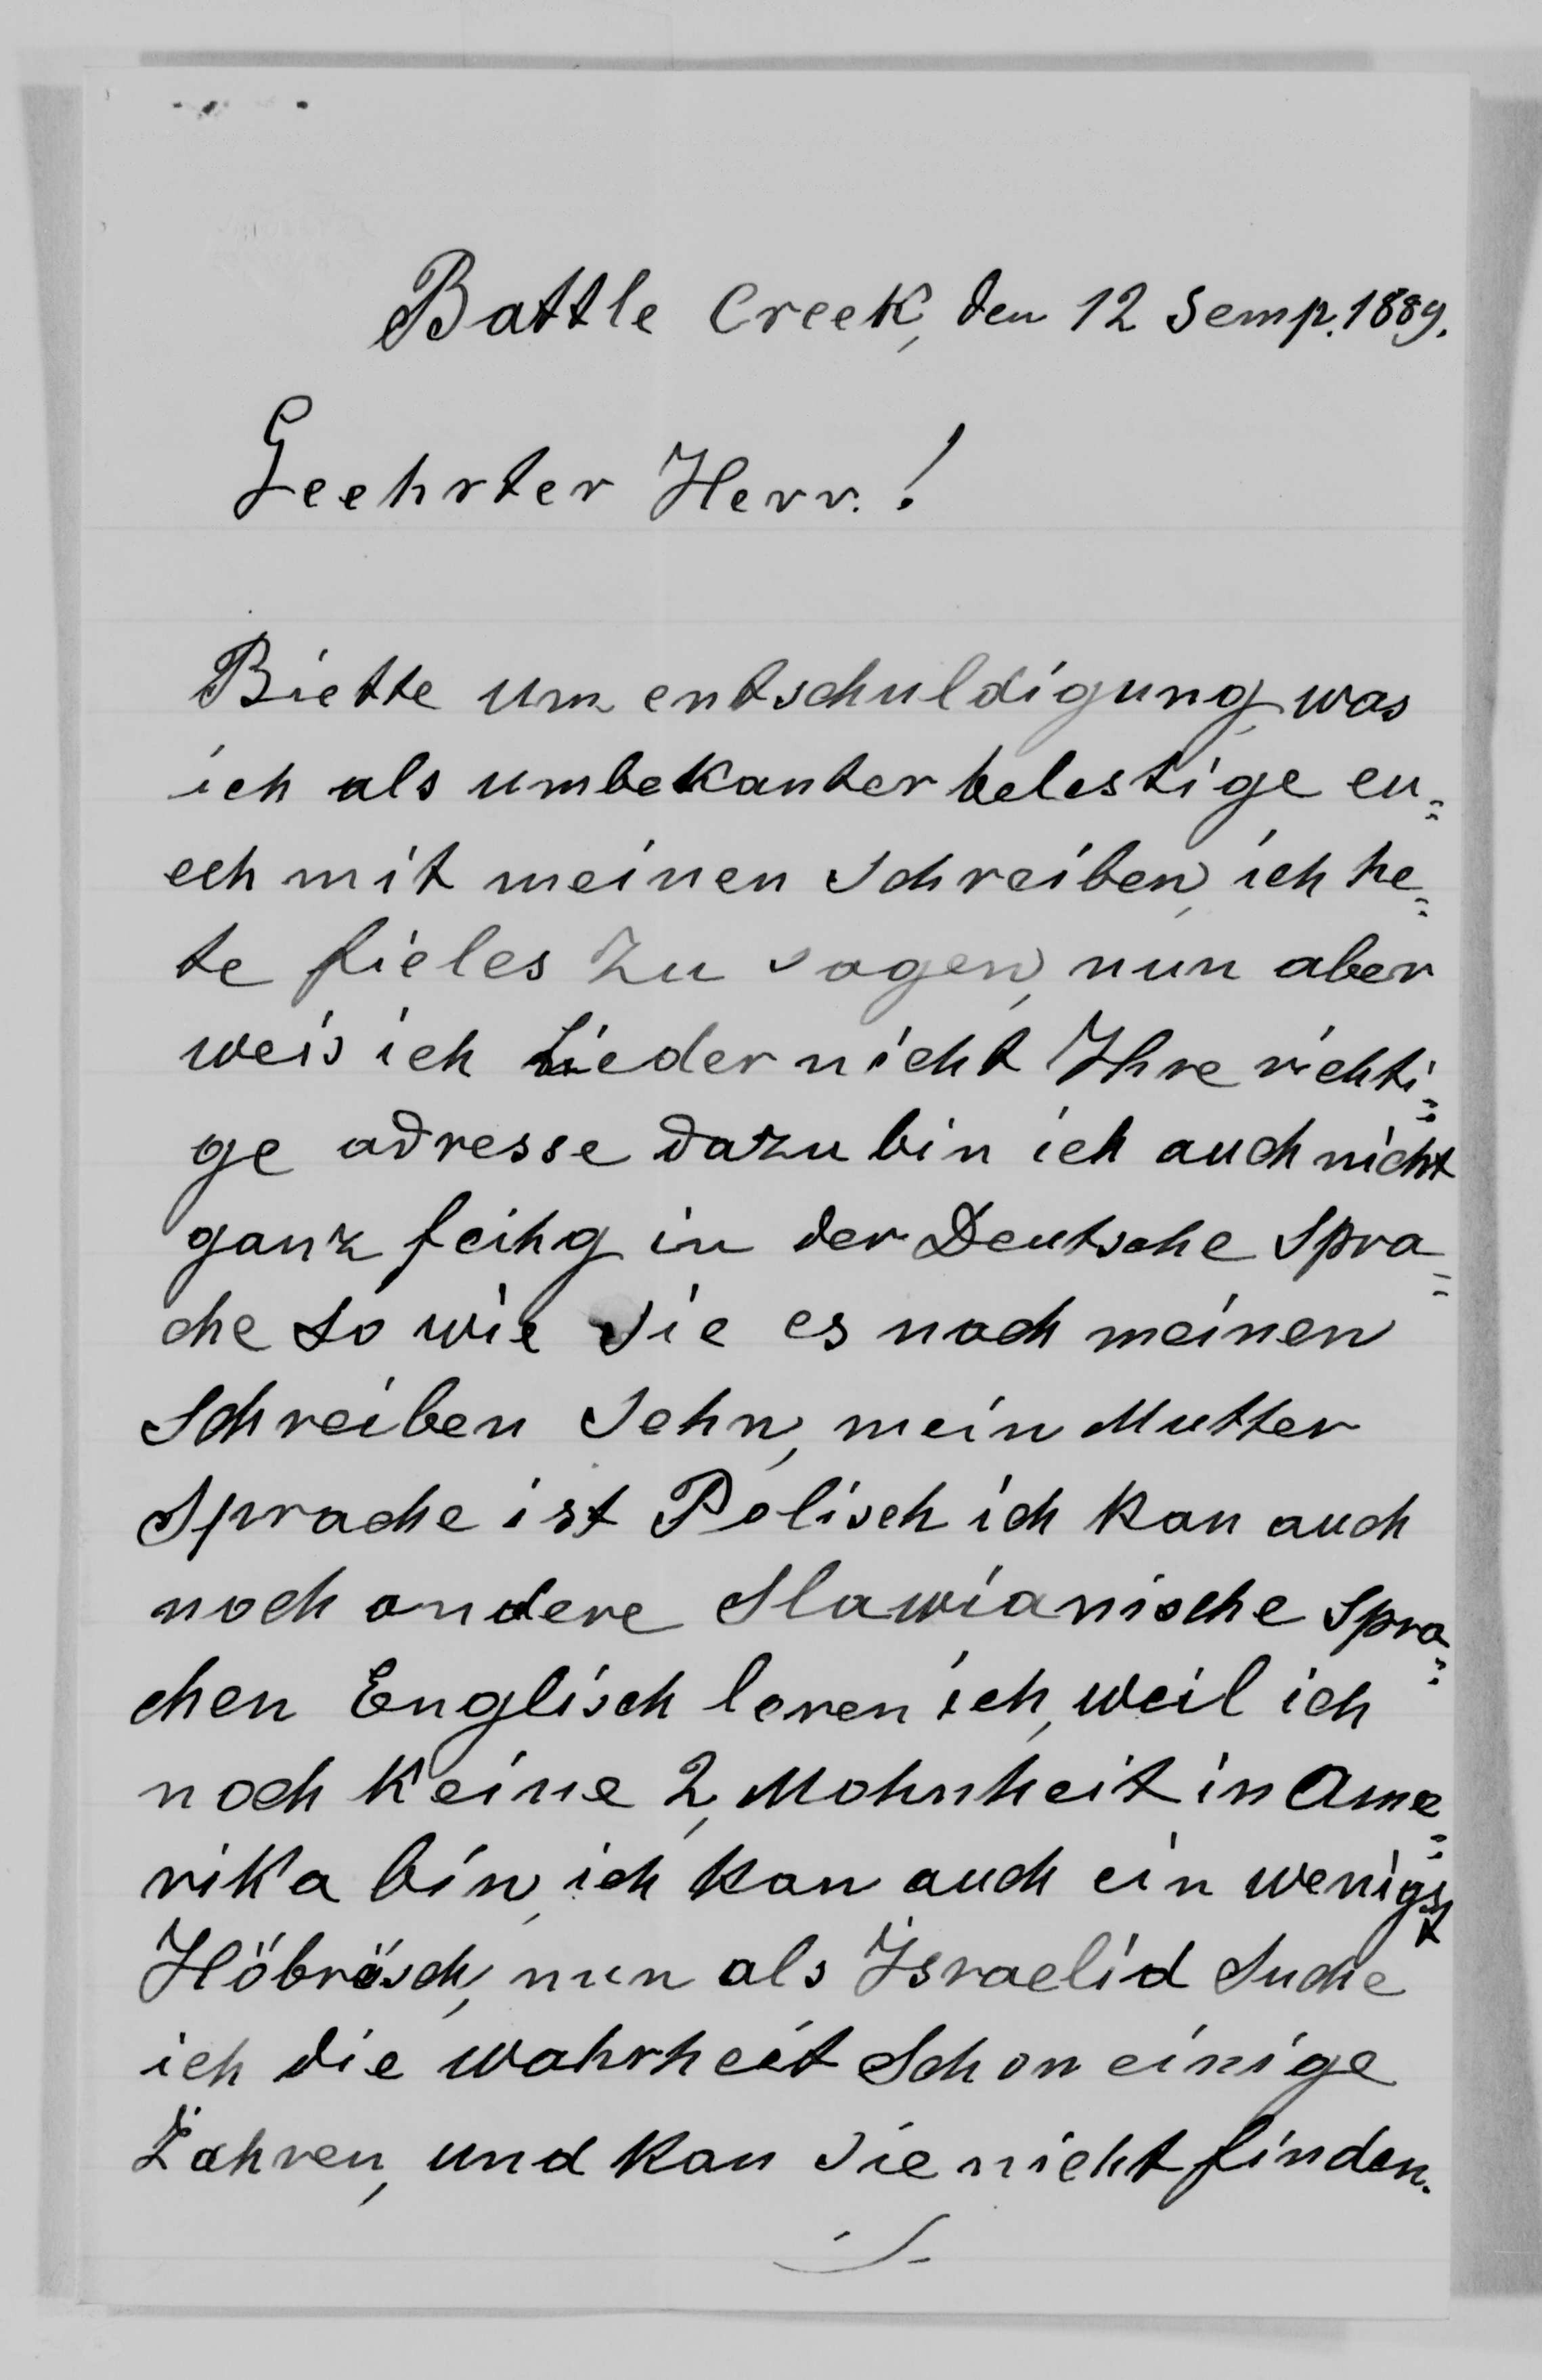 Battle Creek, den 12 Semp. 1889.
Geehrter Herr.!
Biette um entschuldigung, was
ich als umbekanter belestige eu=
ech mit meinen Schreiben, ich he=
te fieles zu sagen, nun aber
weis ich Lieder nicht Ihre richti=
ge adresse dazu bin ich auch nicht
ganz feihg in der Deutsche Spra=
che so wie Sie es nach meinen
Schreiben Sehn, mein Mutter
Sprache ist Polisch ich kan auch
noch andere Slawianische Spra=
chen Englisch leren ich, weil ich
noch keine 2, Mohnheit in Ame=
rika bin, ich kan auch ein wenigst
Höbräsch, nun als Israelid Suche
ich die wahrheit Schon einige
Jahren, und kan Sie nicht finden.